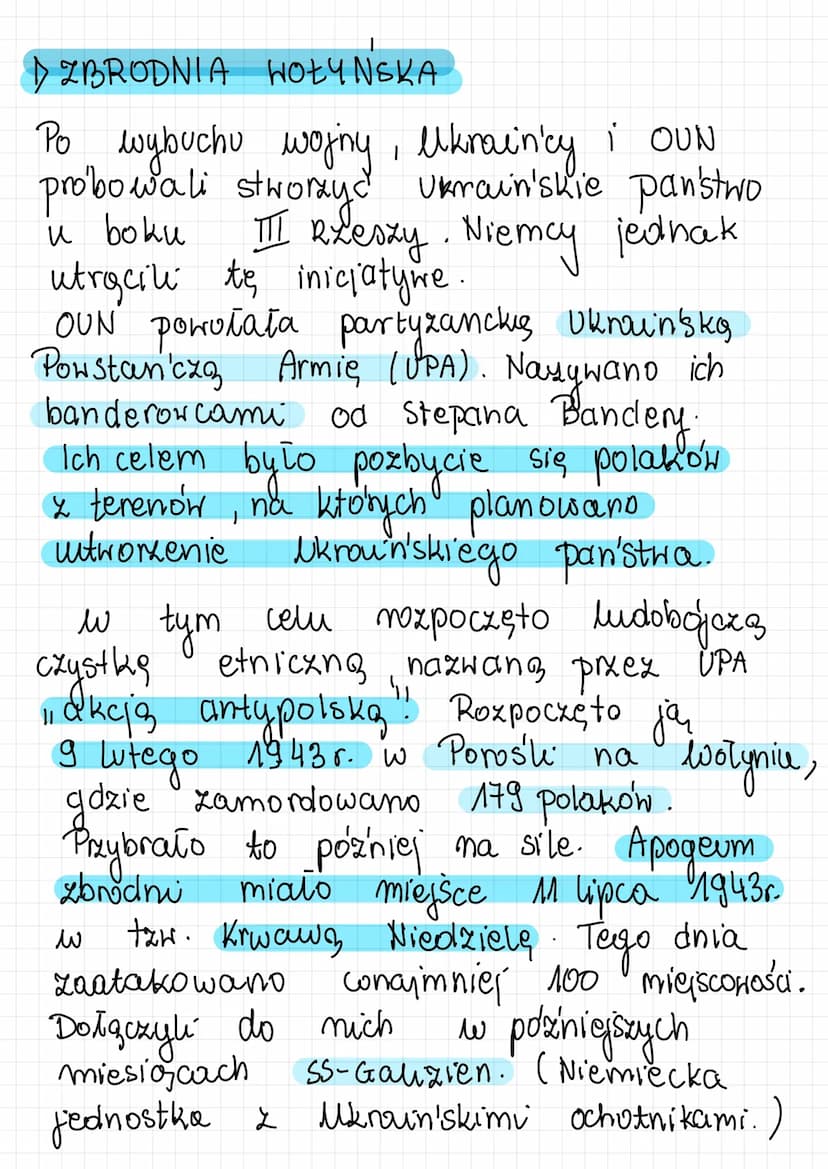 ▷ ZBRODNIA WOŁYŃSKA
Po wybuchu wojny, Ukraińcy i OUN
próbowali stworzyć ukraińskie państwo
u boku III Rzeszy. Niemcy jednak
utrącili tę inicjatywe.
OUN powołała partyzancką Ukraińską
Powstańczą Armię (UPA). Nazywano ich
banderowcami od Stepana Bandery.
Ich celem było pozbycie się polaków
z terenów, na których planowano
utworzenie Ukraińskiego państwa.
W tym celu rozpoczęto ludobójczą
czystkę etniczną, nazwaną przez UPA
"akcją antypolską". Rozpoczęto ją,
9 lutego 1943r. w Porośli na Wołyniu,
gdzie zamordowano 179 polaków.
Przybrało to później na sile. Apogeum
zbrodni miało miejsce 11 lipca 1943r.
w tzw. Krwawą Niedzielę. Tego dnia
zaatakowano conajmniej 100 miejscowości.
Dołączyli do nich w późniejszych
miesiącach SS-Galizien. (Niemiecka
jednostka z Ukraińskimi ochotnikami.)